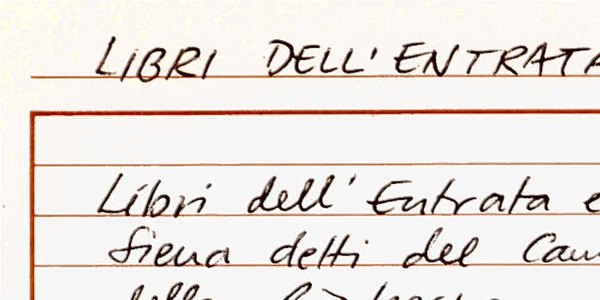 LIBRI DELL' ENTRATA
Libri dell' Entrata e
Siena detti del Cam
della